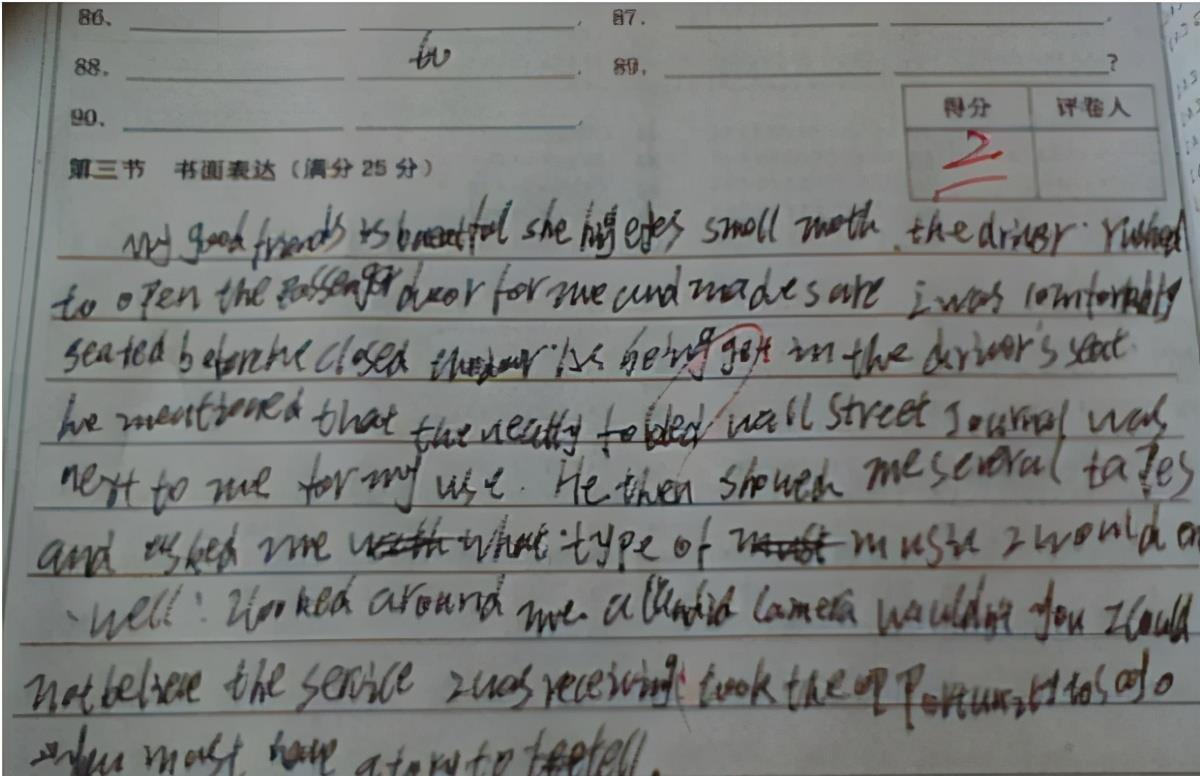 86、 . 87. .
88、 to . 89. ?
90、 .
得分 评卷人
2
第三节 书面表达（满分 25 分）
My good friends is she big eyes small moth. the driver rushed
to open the door for me and made sare i was comfortably
seated before he closed in the driver's seat.
he mentioned that the neatly folded wall street Journal was
next to me for my use. He then showed me several tapes
and asked me what type of music I would en
well! looked around me. a candid camera wouldn't you I could
not believe the service I was receiving took the opportunity to
you must have a tory to tell.